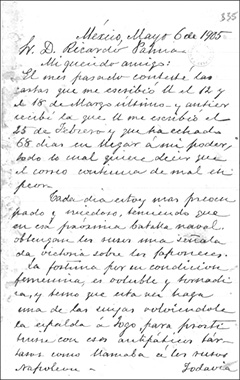 335
México, Mayo 6 de 1905
Sr. D. Ricardo Palma
Mi querido amigo:
El mes pasado contesté las
cartas que me escribió U el 12 y
el 18 de Marzo último y antier
recibí la que U me escribió el
25 de Febrero y que ha echado
68 dias en llegar á mi poder;
todo lo cual quiere decir que
el correo continua de mal en
peor.
Cada dia estoy mas preocu
pado y miedoso, temiendo que
en esa próxima batalla naval
obtengan los rusos una señala
da victoria sobre los japoneses.
La fortuna por su condición
femenina, es voluble y tornadi
za, y temo que esta vez haga
una de las suyas volviéndole
la espalda á Togo para prosti
tuirse con esos antipáticos tár
taros como llamaba á los rusos
Napoleon.
Todavía